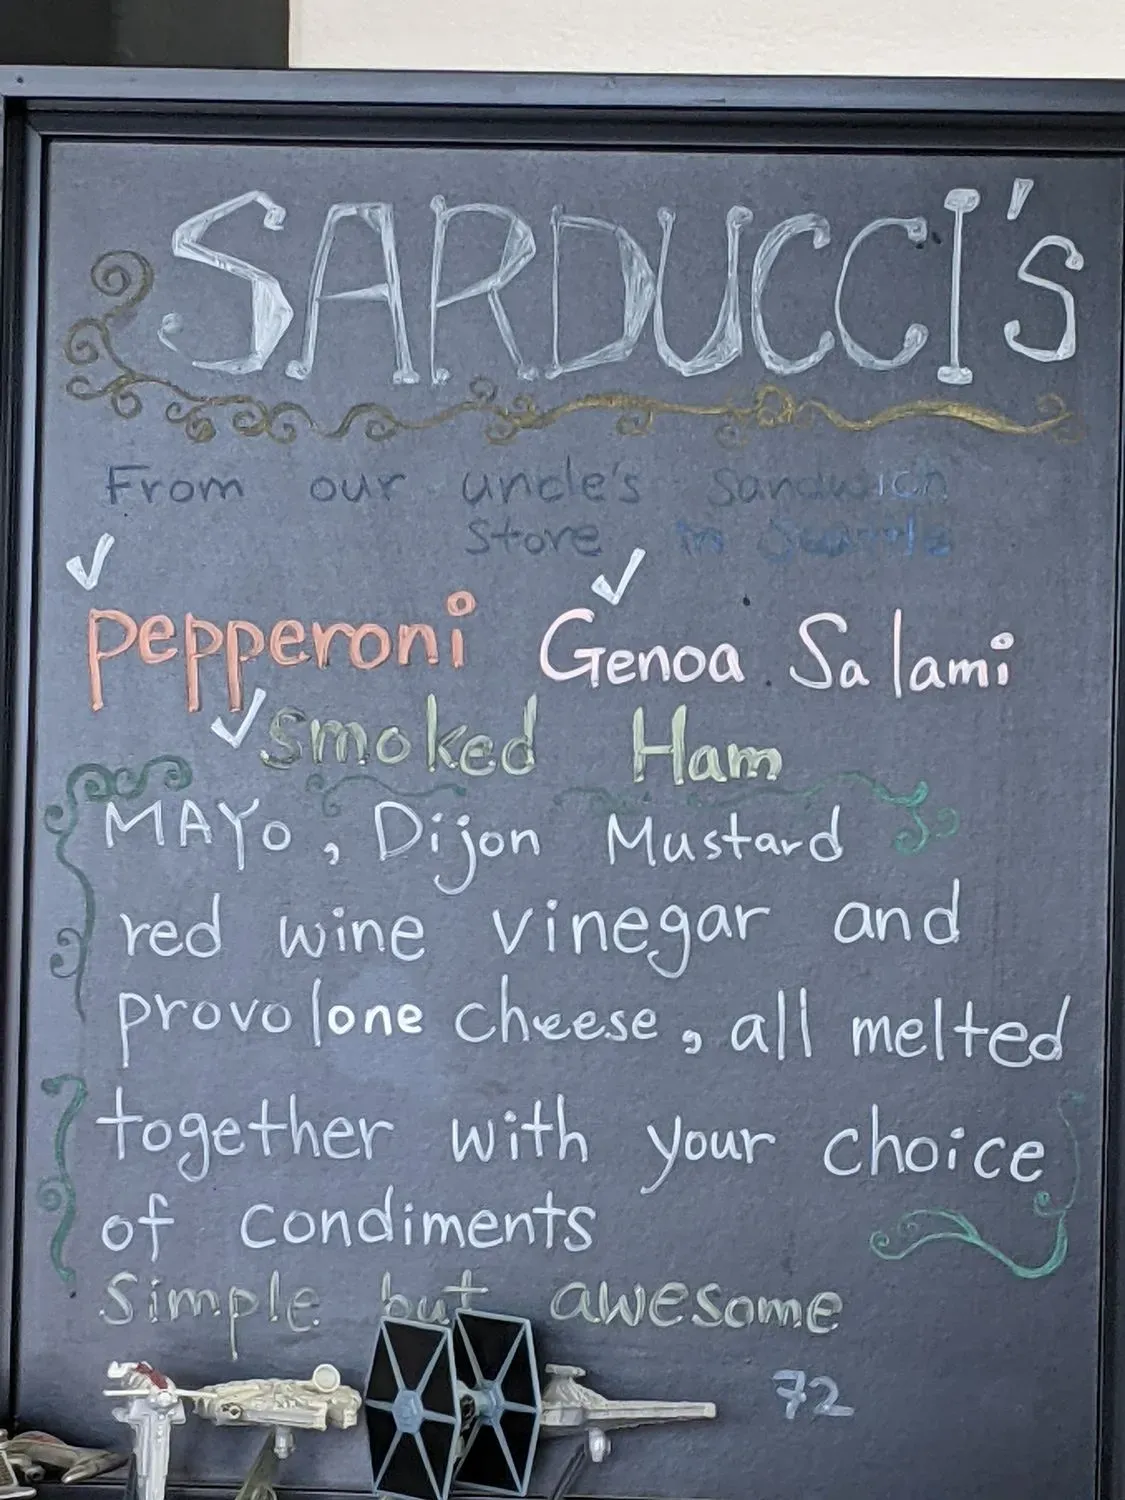 SARDUCCI's
From our uncle's Sandwich
store in Seattle
Pepperoni Genoa Salami
Smoked Ham
MAYO, Dijon Mustard
red wine vinegar and
provolone cheese, all melted
together with your choice
of condiments
Simple but awesome
72